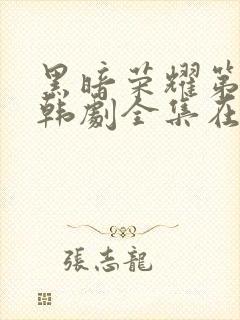 黑暗荣耀第
韩剧全集在
張志龍